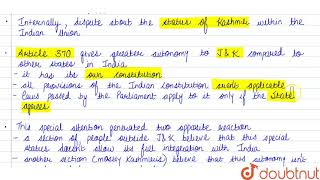 Internally, dispute about the status of Kashmir within the
Indian Union
• Article 370 gives greater autonomy to J&K compared to
other states in India
- it has its own constitution
- all provisions of the Indian constitution aren't applicable
- laws passed by the Parliament apply to it only if the State
agrees
• This special attention generated two opposite reaction
- a section of people outside J&K believe that this special
status doesn't allow its full integration with India
- another section (mostly Kashmiris) believe that this autonomy isn't
doubtnut